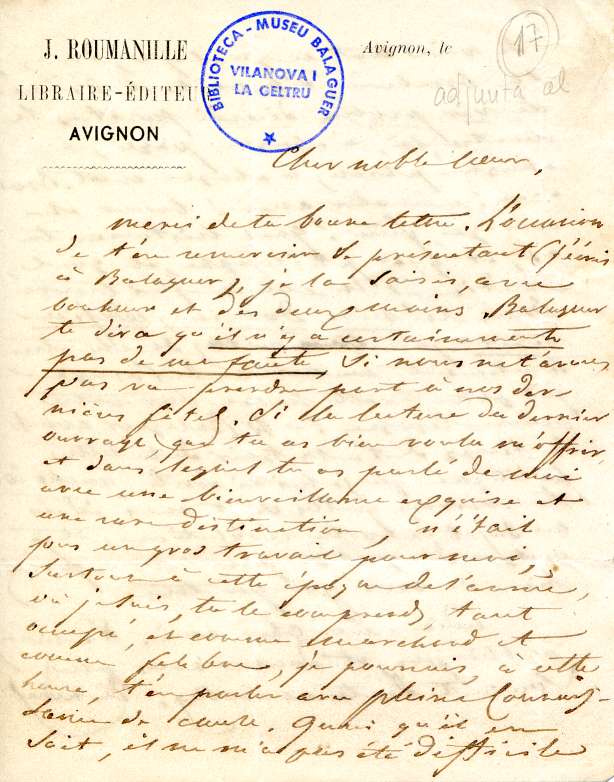 J. ROUMANILLE
LIBRAIRE-ÉDITEUR
AVIGNON
BIBLIOTECA-MUSEU BALAGUER
VILANOVA I
LA GELTRU
Avignon, le
17
adjunta al
Cher noble cœur,
merci de ta bonne lettre. L'occasion
de t'en remercier se présentant (j'écris
à Balaguer), je la saisis, avec
bonheur et des deux mains. Balaguer
te dira qu'il n'y a certainement
pas de ma faute, si nous ne t'avons
pas vu prendre part à nos der-
nières fêtes. Si la lecture du dernier
ouvrage, que tu as bien voulu m'offrir,
et dans lequel tu as parlé de moi
avec une bienveillance exquise et
une rare distinction, n'était
pas un gros travail pour moi,
surtout à cette époque de l'année,
où je suis, tu le comprends, tant
occupé, et comme marchand et
comme felibre, je pourrais, à cette
heure, t'en parler avec pleine connais-
sance de cause. Quoi qu'il en
soit, il ne m'a pas été difficile